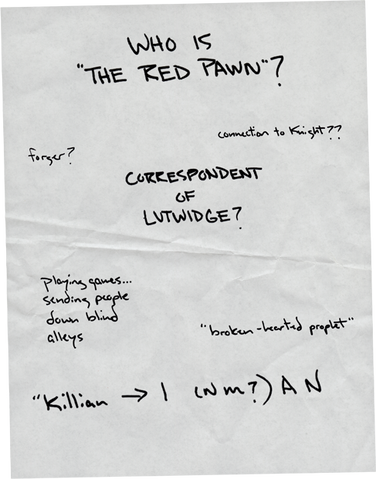 WHO IS
"THE RED PAWN"?
connection to Knight??
forger?
CORRESPONDENT
OF
LUTWIDGE?
playing games...
sending people
down blind
alleys
"broken-hearted prophet"
"Killian → 1 (N m?) A N